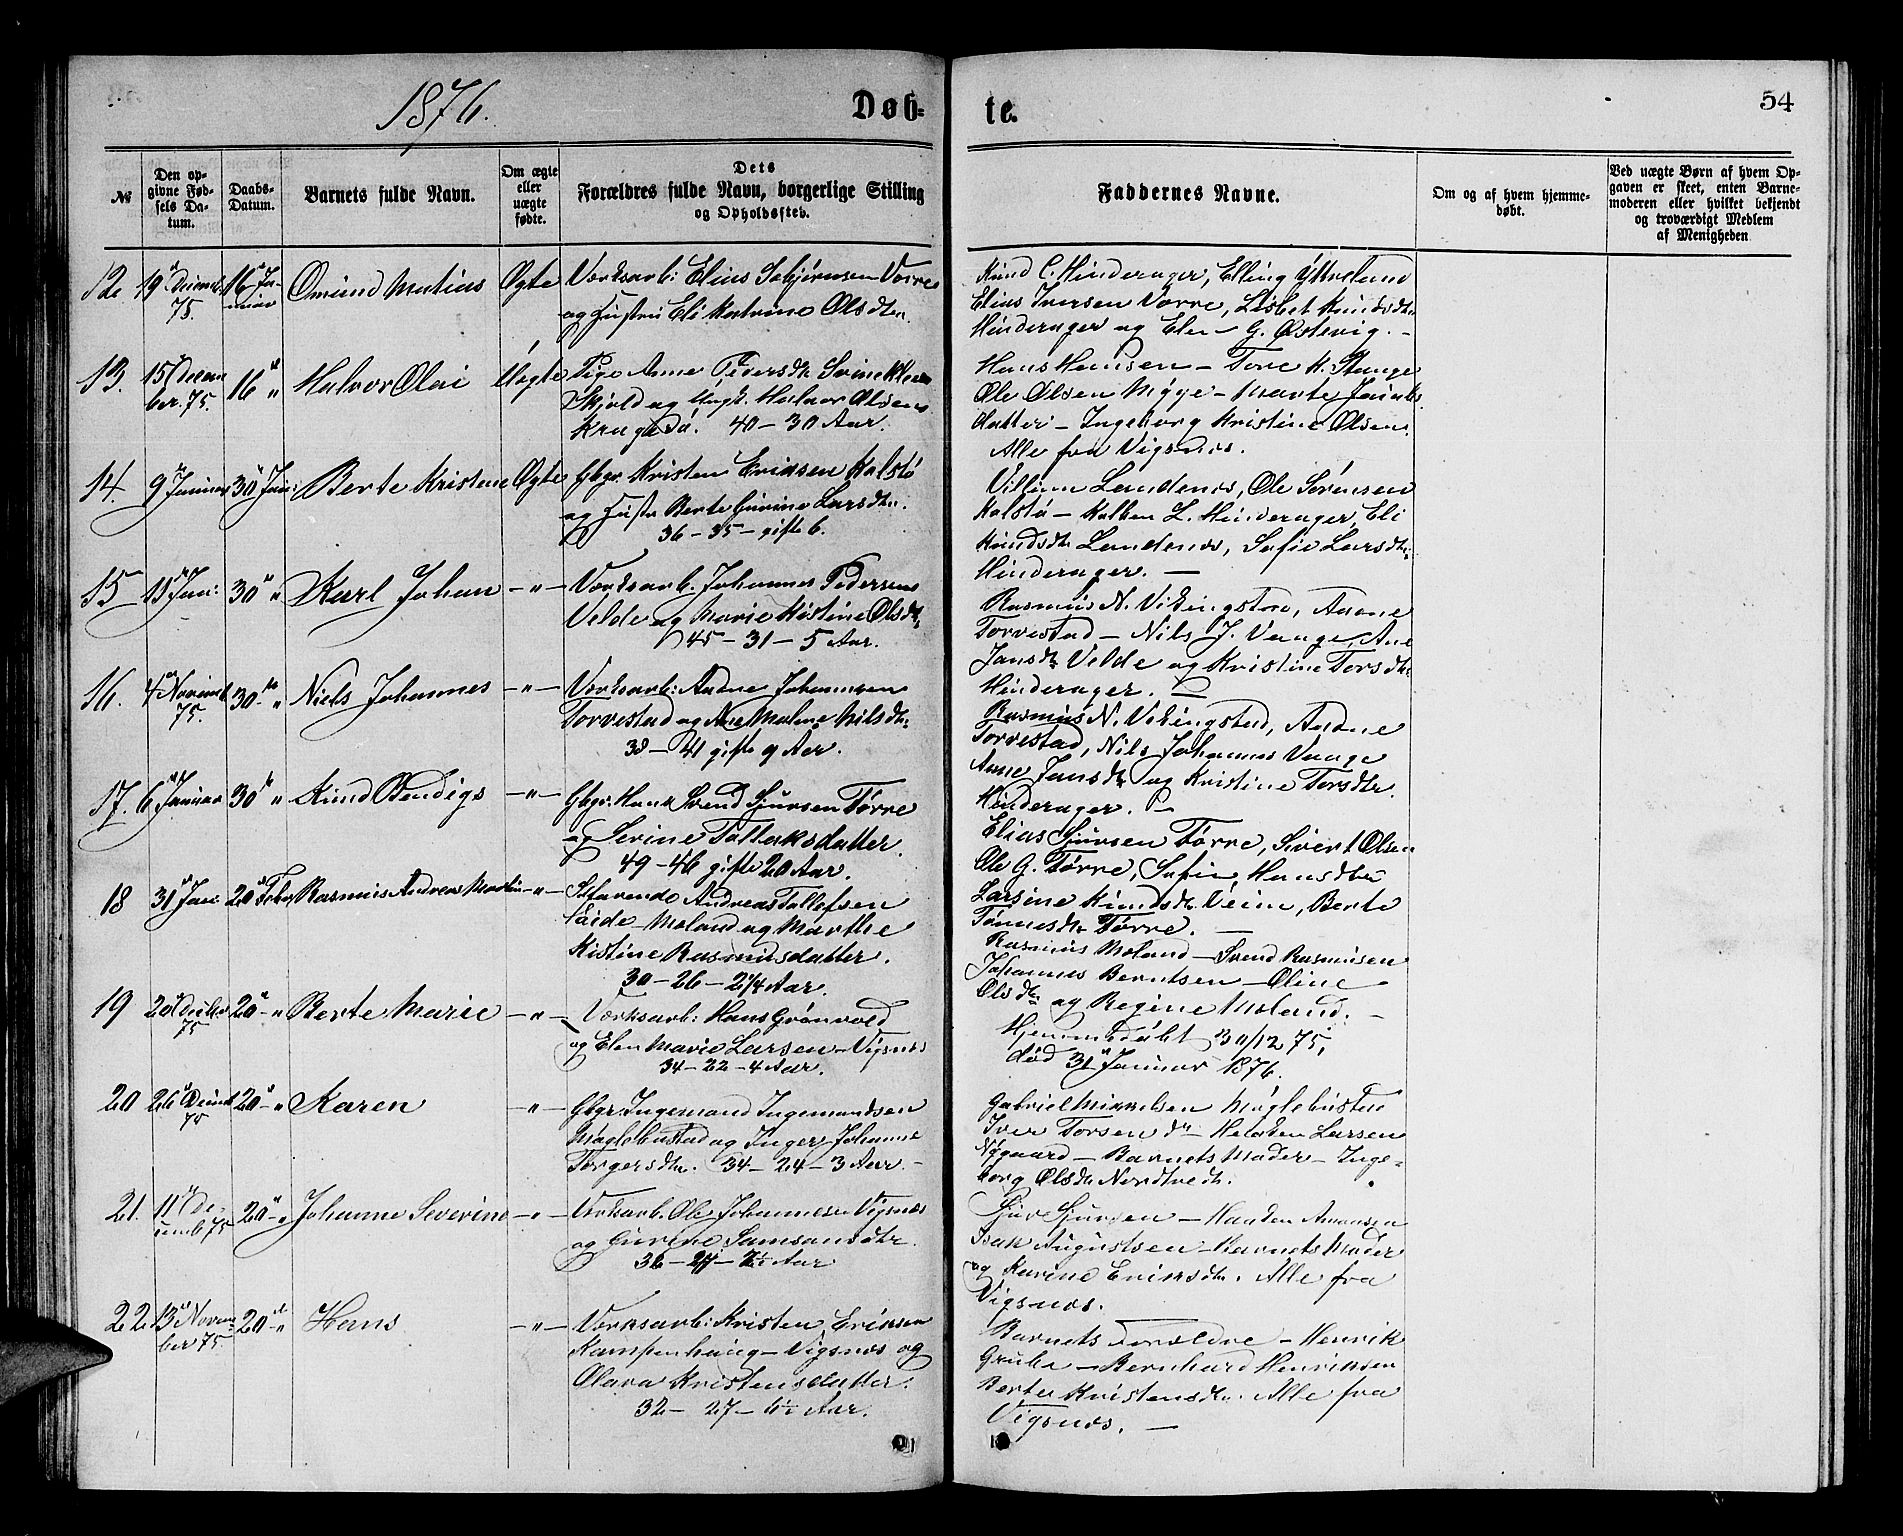 1876.
Døb-
te.
54
№
Den op-
givne Fød-
sels Da-
tum.
Daabs-
Datum.
Barnets fulde Navn.
Om ægte
eller
uægte
fødte.
Dets
Forældres fulde Navn, borgerlige Stilling
og Opholdssted.
Faddernes Navne.
Om og af hvem hjemme-
døbt.
Ved uægte Børn af hvem Op-
gaven er skeet, enten Barne-
moderen eller hvilket bekjendt
og troværdigt Medlem
af Menigheden
12 19 Decemb 75. 16 Januar Omund Matias Ægte Værksarb: Elias Vorre
og Hustru Eli Katrine Olsdtr.
Knud C. Hinderager, Elling Yttreland
Elias Iversen Vorre, Lisbet Knudsdtr
Hinderager og Elen G. Østevig. -
13. 15 Decem
ber. 75. 16 " Halvor Olai Uægte Pige Anne Pedersdtr
Skjold og Ungk. Halvor Olsen
Kragerø. 40 - 30 Aar.
Hans Hansen - Tore K. Stange
Ole Olsen Myge - Marte Jakobs
datter - Ingeborg Kristine Olsen.
Alle fra Vigsnæs.
14. 9 Januar 30 Jan: Berte Kristine Ægte Gbgr. Kristen Eriksen Kalstø
og Hustr Berte Gurine Larsdtr.
36 - 35 - gifte 6.
Villum Landenæs, Ole Sørensen
Kalstø - L. Hinderager, Eli
Knudsdtr Landenæs, Sofie Larsdtr
Hinderager. -
15 15 Jan: 30 " Karl Johan - " - Værksarb. Johannes Pedersen
Velde og Marie Kistine Olsdtr
45 - 31 - 5 Aar.
Rasmus N. Vikingstad, Aadne
Torvestad - Nils J. Vaage, Ane
Jansdtr Velde og Kristine Torsdtr
Hinderager. -
16. 4 Novemb 75. 30 " Niels Johannes - " - Værksarb: Aadne Johannesen
Torvestad og Ane Malene Nilsdtr.
38 - 41 gifte 9 Aar.
Rasmus N. Vikingstad, Aadne
Torvestad, Nils Johannes Vaage
Anne Jansdtr og Kristine Torsdtr.
Hinderager. -
17. 6 Januar 30 " Knud Bendigs - " - Gbgr. Hans Svend Sjursen Førre
og Serine Tallaksdatter.
49 - 46 gifte 20 Aar.
Elias Sjursen Førre, Sivert Olsen
Ole G. Førre, Sofie Hansdtr
Larsine Knudsdtr Veim, Berte
Tønnesdtr Førre. -
18 31 Jan: 20 Febr Rasmus Andreas Martin - " - Andreas Tollefsen
Moland og Marthe
Kistine Rasmusdatter.
30 - 26 - 2 1/4 Aar.
Rasmus Moland - Svend Rasmusen
Johannes Berntsen - Oline
Olsdtr og Regine Moland. -
19 20 Decbr 75 20 - " Berte Marie - " - Værksarb: Hans Grønvold
og Elen Marie Larsen - Vigsnæs
34 - 22 - 4 Aar.
Hjemmedøbt 30/12 75,
død 31 Januar 1876.
20 26 Decemb 75 20 - " Karen - " - Gbgr Ingemand Ingemandsen
Møglebustad og Inger Johanne
Torgersdtr. 34 - 24 - 3 Aar. -
Gabriel Mikkelsen Møglebustad
Iver Torsen do - Larsen
Nygaard - Barnets Moder - Inge-
borg Olsdtr Nordtvedt.
21. 11 De-
cemb 75 20 - " Johanne Severine - " - Værksarb. Ole Johannesen Vigsnæs
og Gurine Samsonsdtr.
36 - 27 - 7 1/2 Aar
Sjur Sjursen - Amonsen
Isak Augustsen - Barnets Moder
og Karine Eriksdtr. Alle fra
Vigsnæs.
22 13 Novem
ber 75. 20 - " Hans - " - Værksarb: Kristen Eriksen
Kampenhaug - Vigsnæs og
Olava Kristensdatter.
32 - 27 - 6 1/2 Aar.
Barnets Forældre - Henrik
Grube - Bernhard Henriksen
Berte Kristensdtr. Alle fra
Vigsnæs. -